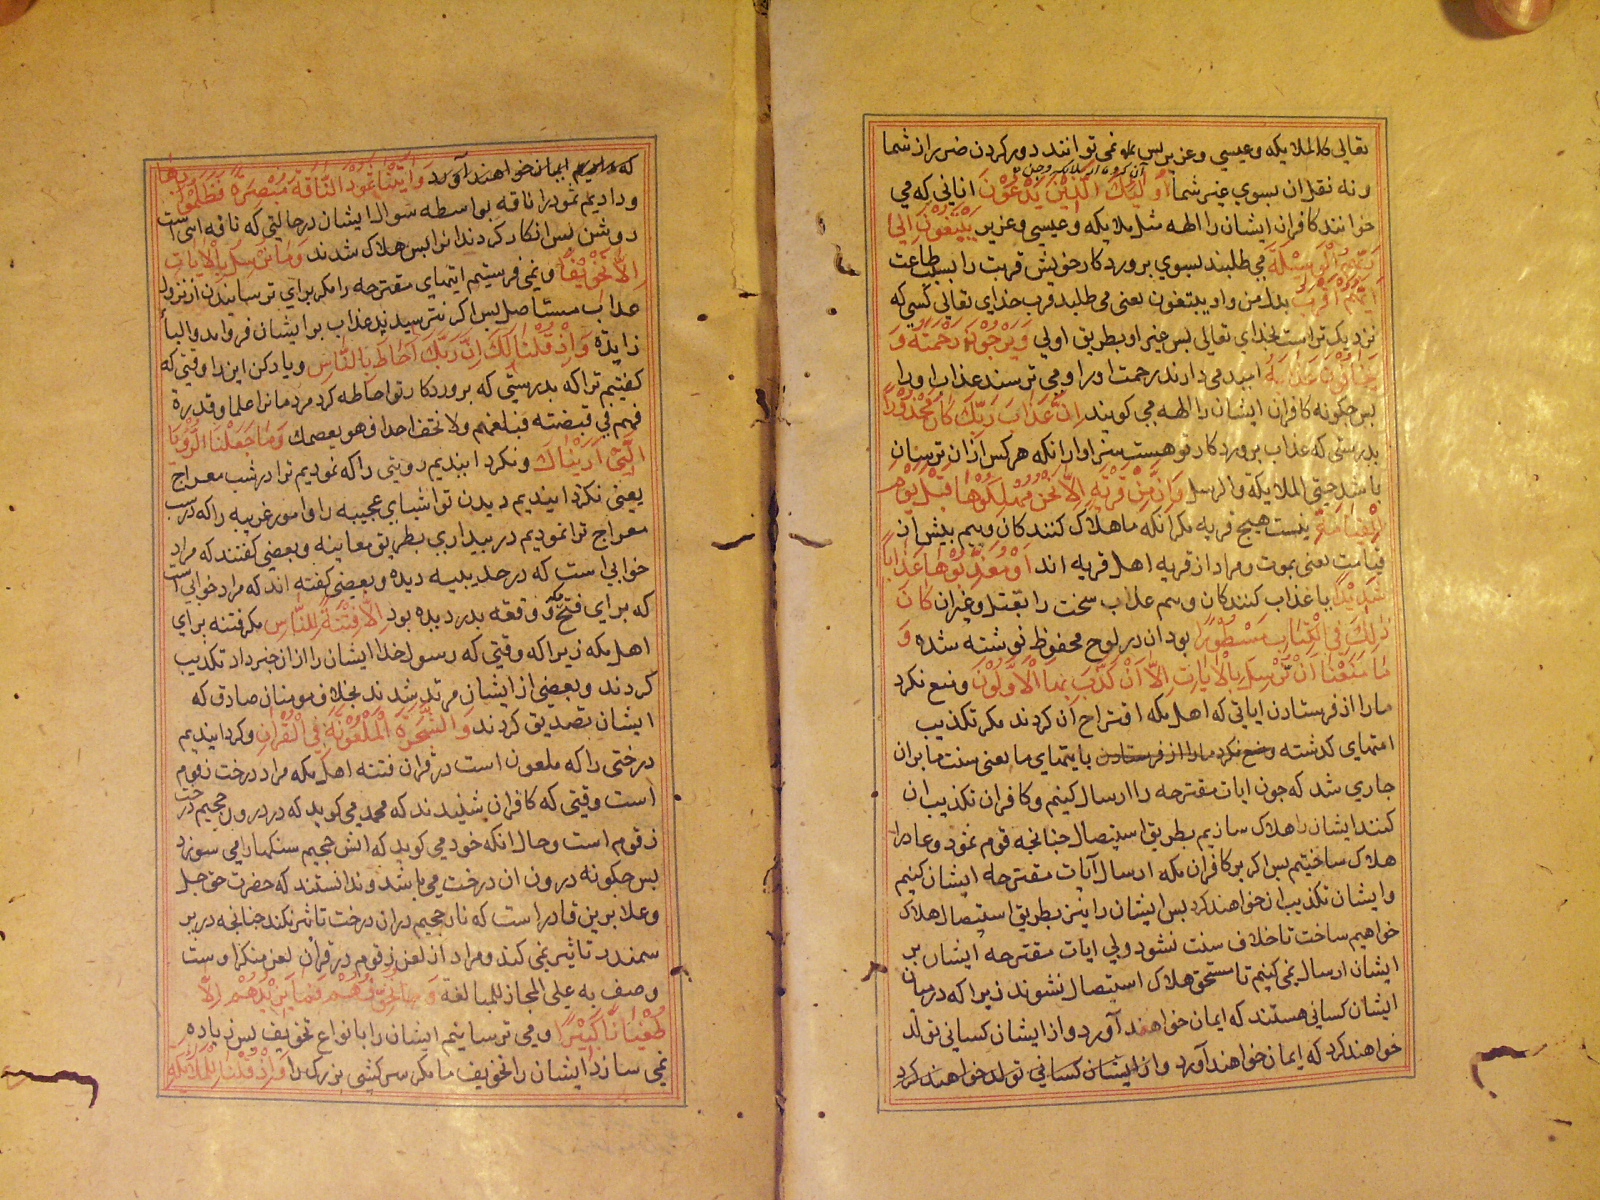 تعالی کالملایکه و عیسی و عزیر پس نمی توانند دور کردن ضر از شما
و نه نقل ان بسوی غیر شما أُولَٰئِكَ الَّذِينَ يَدْعُونَ انانی که می
خوانند کافران ایشان را الهه مثل ملایکه و عیسی و عزیر يَبْتَغُونَ إِلَىٰ
رَبِّهِمُ الْوَسِيلَةَ می طلبند بسوی پروردکار خویش قربت را بسبب طاعت
أَيُّهُمْ أَقْرَبُ بدل من واو یبتغون یعنی می طلبد قرب خدای تعالی کسی که
نزدیک تر است بخدای تعالی پس غیر او بطریق اولی وَيَرْجُونَ رَحْمَتَهُ وَ
يَخَافُونَ عَذَابَهُ امید می دارند رحمت او را و می ترسند عذاب او را
پس چکونه کافران ایشان را الهه می کویند إِنَّ عَذَابَ رَبِّكَ كَانَ مَحْذُورًا
بدرستی که عذاب پروردکار تو هست سزاوار انکه هر کس از ان ترسان
باشد حتی الملایکة والرسل وَإِنْ مِنْ قَرْيَةٍ إِلَّا نَحْنُ مُهْلِكُوهَا قَبْلَ يَوْمِ
الْقِيَامَةِ نیست هیچ قریه مکر انکه ما هلاک کنندکان وییم پیش از
قیامت یعنی بموت و مراد از قریه اهل قریه اند أَوْ مُعَذِّبُوهَا عَذَابًا
شَدِيدًا یا عذاب کنندکان وییم عذاب سخت را بقتل و غیران كَانَ
ذَٰلِكَ فِي الْكِتَابِ مَسْطُورًا بود ان در لوح محفوظ نوشته شده وَ
مَا مَنَعَنَا أَنْ نُرْسِلَ بِالْآيَاتِ إِلَّا أَنْ كَذَّبَ بِهَا الْأَوَّلُونَ و منع نکرد
ما را از فرستادن ایاتی که اهل مکه اقتراح آن کردند مکر تکذیب
امتهای کذشته و منع نکرد ما را از فرستادن بایتهای ما یعنی سنت ما بران
جاری شد که چون ایات مقترحه را ارسال کنیم و کافران تکذیب ان
کنند ایشان را هلاک سازیم بطریق استیصال چنانچه قوم ثمود و عاد را
هلاک ساختیم پس اکر بر کافران مکه ارسال آیات مقترحه ایشان کنیم
و ایشان تکذیب ان خواهند کرد پس ایشان را نیز بطریق استیصال هلاک
خواهیم ساخت تا خلاف سنت نشود ولی ایات مقترحه ایشان بر
ایشان ارسال نمی کنیم تا مستحق هلاک استیصال نشوند زیرا که درمیان
ایشان کسانی هستند که ایمان خواهند آورد و از ایشان کسانی تولد
خواهند کرد که ایمان خواهند آورد و از ایشان کسانی تولد خواهند کرد
که ایمان خواهند آورد وَآتَيْنَا ثَمُودَ النَّاقَةَ مُبْصِرَةً فَظَلَمُوا بِهَا
و دادیم ثمود را ناقه بواسطه سوال ایشان در حالتی که ناقه ایتی است
روشن پس انکار کردند انرا پس هلاک شدند وَمَا نُرْسِلُ بِالْآيَاتِ
إِلَّا تَخْوِيفًا و نمی فرستیم ایتهای مقترحه را مکر برای ترسانیدن از نزول
عذاب مستاصل پس اکر نترسیدند عذاب بر ایشان فرو اید والباء
زایدة وَإِذْ قُلْنَا لَكَ إِنَّ رَبَّكَ أَحَاطَ بِالنَّاسِ و یاد کن اینرا وقتی که
کفتیم ترا که بدرستی که پروردکار تو احاطه کرد مردمانرا علما و قدرة
فهم فی قبضته فبلغهم ولا تخف احدا فهو یعصمك وَمَا جَعَلْنَا الرُّؤْيَا
الَّتِي أَرَيْنَاكَ و نکردانیدیم رویتی را که نمودیم ترا در شب معراج
یعنی نکردانیدیم دیدن تو اشیای عجیبه را و امور غریبه را که در شب
معراج ترا نمودیم در بیداری بطریق معاینه و بعضی کفتند که مراد
خوابی است که در حدیبیه دیده و بعضی کفته اند که مراد خوابی است
که برای فتح مکه و وقعه بدر دیده بود إِلَّا فِتْنَةً لِلنَّاسِ مکر فتنه برای
اهل مکه زیرا که وقتی که رسول خدا ایشان را از ان خبر داد تکذیب
کردند و بعضی از ایشان مرتد شدند بخلاف مومنان صادق که
ایشان تصدیق کردند وَالشَّجَرَةَ الْمَلْعُونَةَ فِي الْقُرْآنِ و کردانیدیم
درختی را که ملعون است در قران فتنه اهل مکه مراد درخت زقوم
است وقتی که کافران شنیدند که محمد می کوید که در درون جحیم درخت
زقوم است و حال انکه خود می کوید که اتش جحیم سنکها را می سوزد
پس چکونه درون ان درخت می باشد و ندانستند که حضرت حق جل
و علا برین قادر است که نار جحیم در ان درخت تاثیر نکند چنانچه در پر
سمندر تاثیر نمی کند و مراد از لعن زقوم در قران لعن منکر اوست
وصف به علی المجاز للمبالغة وَنُخَوِّفُهُمْ فَمَا يَزِيدُهُمْ إِلَّا
طُغْيَانًا كَبِيرًا و می ترسانیم ایشان را بانواع تخویف پس زیاده
نمی سازد ایشان را تخویف ما مکر سرکشی بزرک را وَإِذْ قُلْنَا لِلْمَلَائِكَةِ